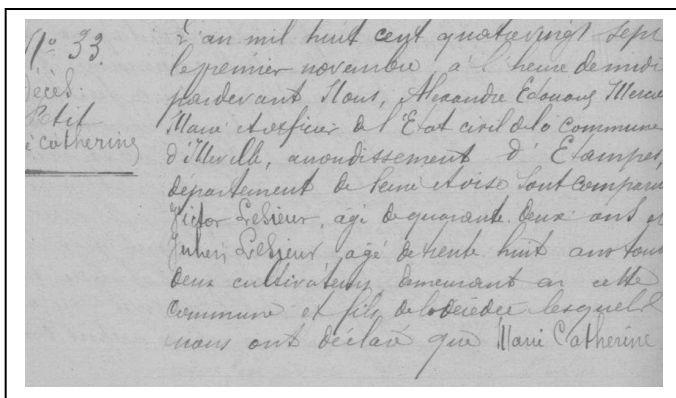 No 33.
Décès:
Petit
Catherine
L'an mil huit cent quatre vingt sept
le premier novembre à l'heure de midi
pardevant Nous, Alexandre Edouard
Maire et officier de l'Etat civil de la Commune
d', arrondissement d'Etampes,
département de Seine et oise sont comparu
Victor Lesieur, âgé de quarante deux ans et
Julien Lesieur âgé de trente huit ans tous
deux cultivateurs demeurant en cette
commune et fils de la décédée lesquels
nous ont déclaré que Marie Catherine